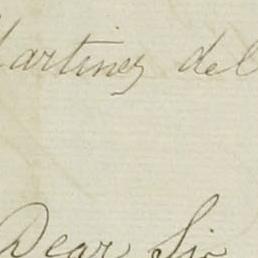 Martinez del
Dear Sir